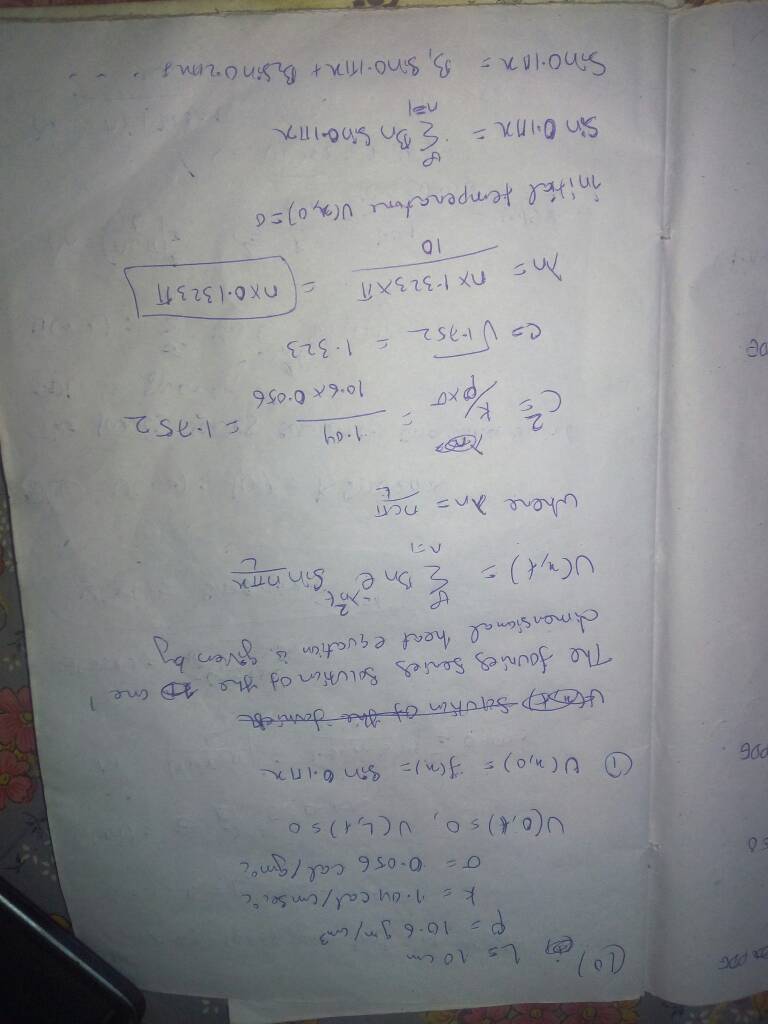 (10) L = 10 cm
ρ = 10.6 gm/cm³
k = 1.04 cal/cm sec °c
σ = 0.056 cal/gm °c
U(0,t) = 0, U(L,t) = 0
① U(x,0) = f(x) = sin 0.1πx
The fourier series solution of the one
dimensional heat equation is given by
U(x,t) = ∞ Σ n=1 Bn e^-λn²t sin nπx/L
where λn = ncπ/L
C² = k/ρ×σ = 1.04/10.6×0.056 = 1.752
C = √1.752 = 1.323
λn = n×1.323×π/10 = n×0.1323π
initial temperature U(x,0) = 0
sin 0.1πx = ∞ Σ n=1 Bn sin 0.1πx
sin 0.1πx = B₁ sin 0.1πx + B₂ sin 0.2πx + . . . .
DG
PDG
50
PDG